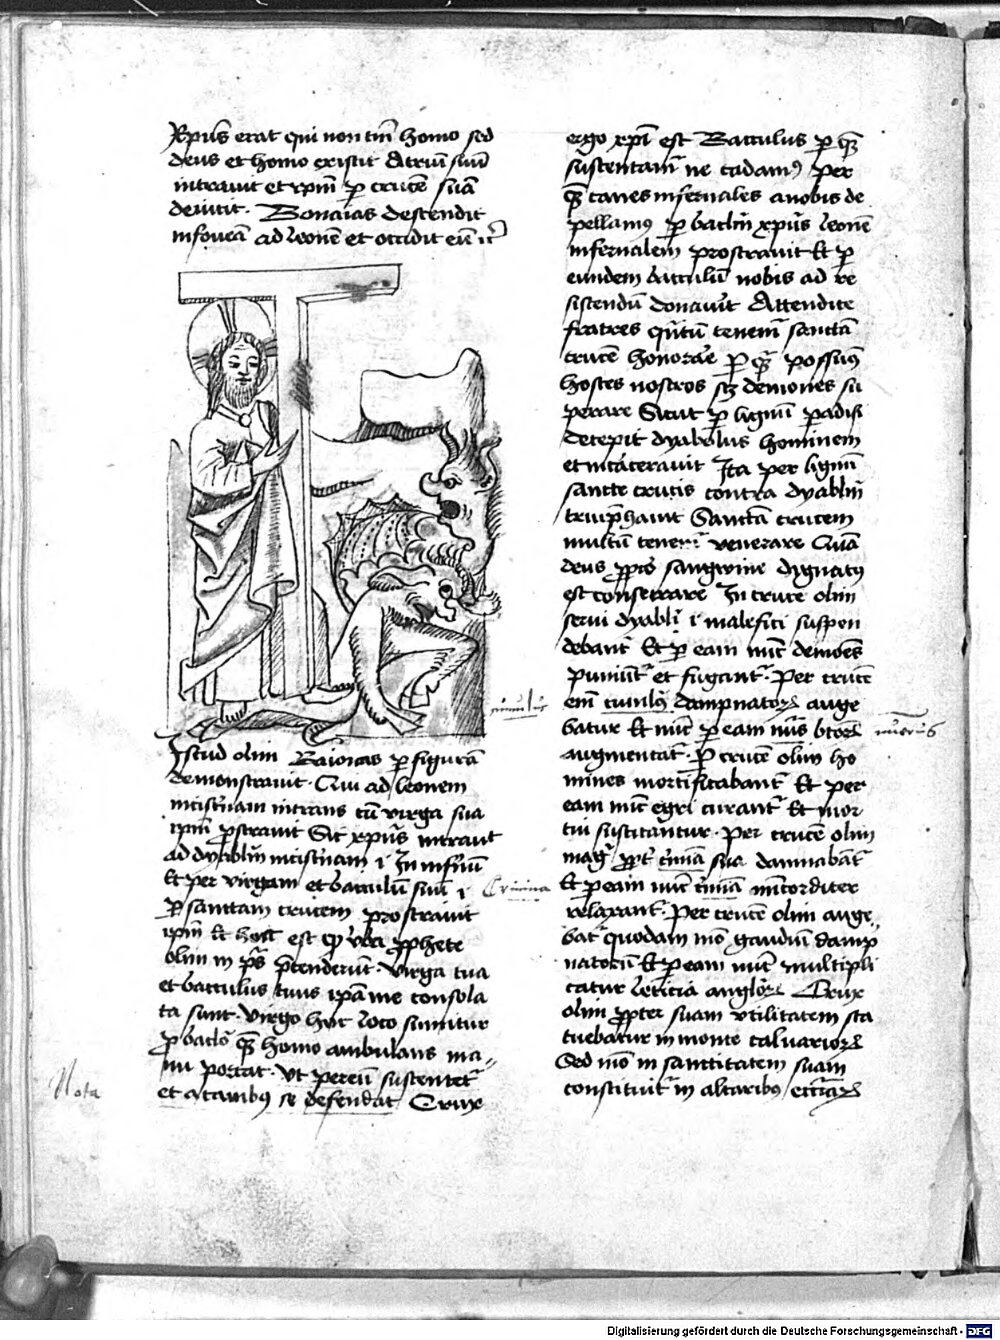 Xpus erat qui non tm homo sed
deus et homo existit Atriu suu
intravit et ipm p cruce sua
devicit. Bonaias descendit
in fovea ad leone et occidit eu
Istud olim Banaias p figura
demonstravit. Qui ad leonem
in cisterna intrans cu virga sua
ipm prostravit Sic xpus intravit
ad dyabli cisternam i In infnu
Et per virgam et baculu suu i
p sanctam crucem prostravit
ipm Et hoc est q vba prophete
olim in ps ptenderut. Virga tua
et bacculus tuus ipa me consola
ta sunt. Virgo hoc loco sumitur
p baclo que homo ambulans ma
nu portat. Ut p eu sustentet
et a canibus se defendat Crux
Nota
Crimina
ergo xpi est Bacculus p que
sustentam ne cadamus per
que canes infernales a nobis de
pellamus p baclm xpus leone
infernalem prostravit Et p
eundem bacculu nobis ad re
sistendu donavit Attendite
fratres qtum tenem sancta
cruce honorare p qua possum
hostes nostros scz demones su
perare Sicut p lignu padisi
decepit dyabolus hominem
et incarceravit Ita per lignu
sancte crucis contra dyablm
triuphavit Sancta crucem
multu tenem venerare Qua
deus pprio sangwine dignatus
est consecrare In cruce olim
servi dyabli i malefici suspen
debant Et p eam nuc demoes
puniunt et fugant. Per cruce
eni cumlus dampnator auge
batur Et nuc p eam nus btor
augmentat. P cruce olim ho
mines mortificabant Et per
eam nuc egri curant Et mor
tui suscitantur. Per cruce olim
mag ppt crimia sua damnabat
Et p eam nuc crimia micorditer
relaxant. Per cruce olim auge
bat quodam mo gaudiu damp
natoru Et p eam nuc multipli
catur leticia anglor Crux
olim propter suam utilitatem sta
tuebatur in monte calvarior
Sed mo in sanctitatem suam
constituit in altaribus ecciar
numerus
Digitalisierung gefördert durch die Deutsche Forschungsgemeinschaft - DFG